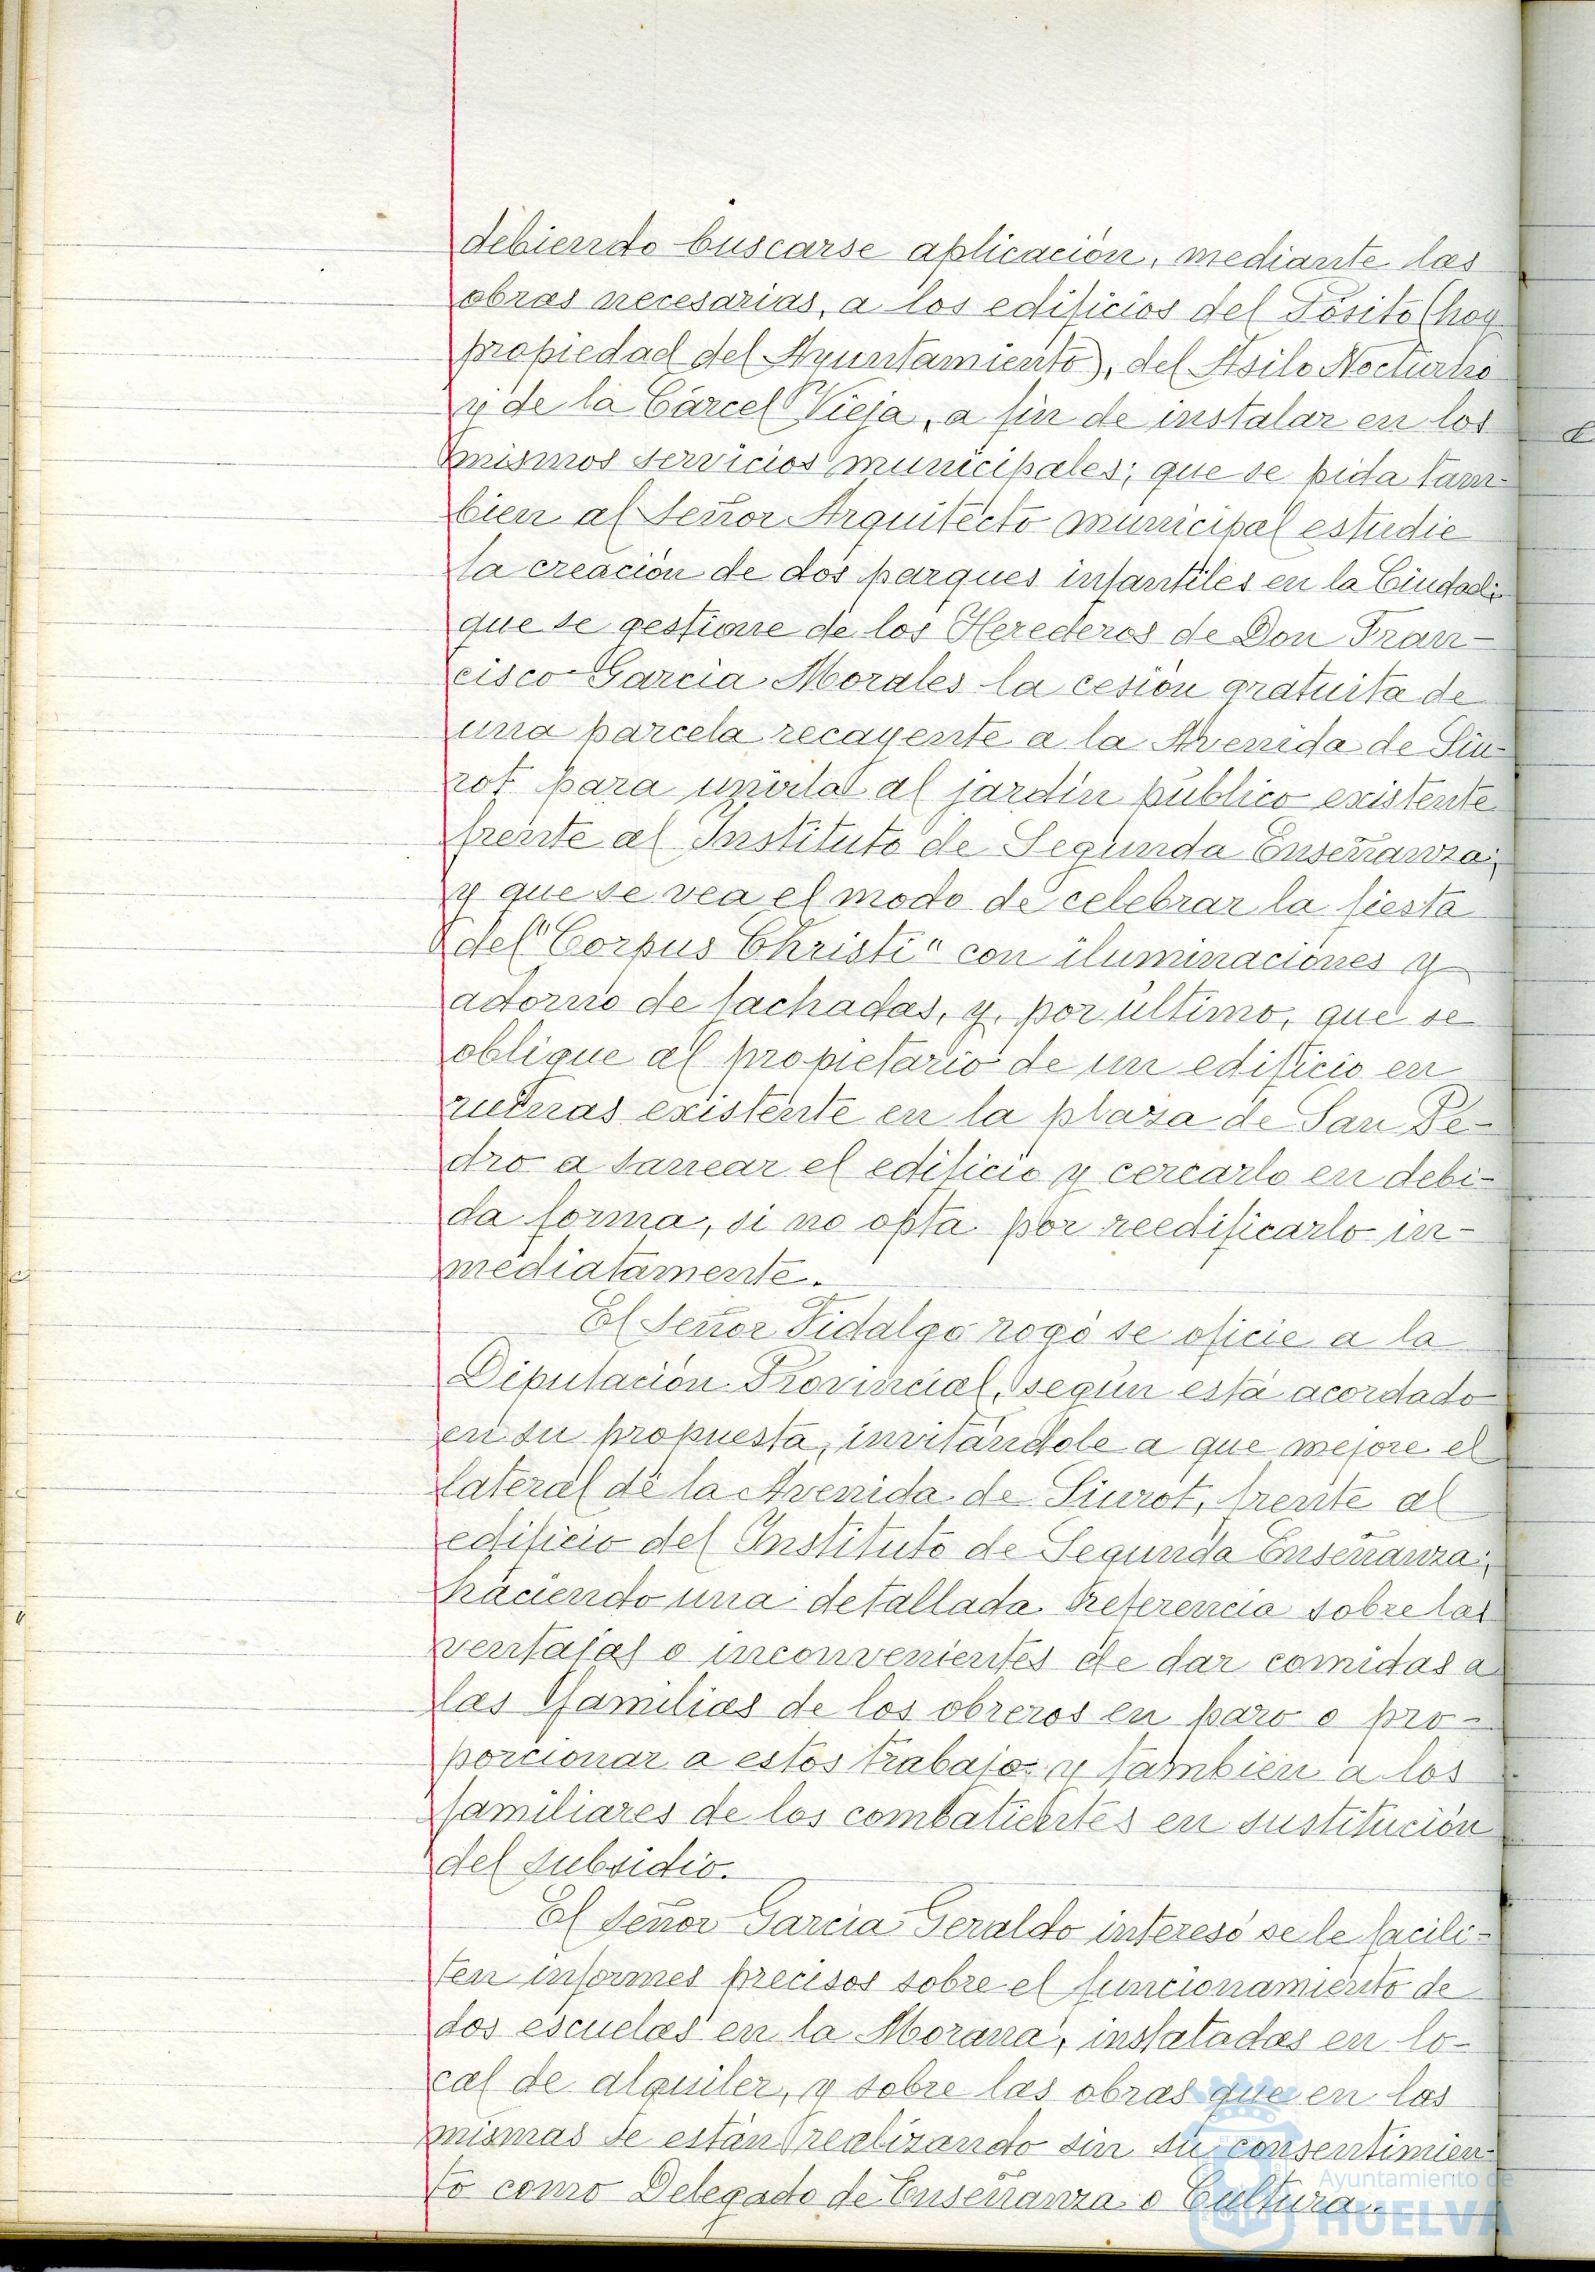 debiendo buscarse aplicación, mediante las
obras necesarias, a los edificios del Pósito (hoy
propiedad del Ayuntamiento), del Asilo Nocturno
y de la Cárcel Vieja, a fin de instalar en los
mismos servicios municipales; que se pida tam-
bien al Señor Arquitecto municipal estudie
la creación de dos parques infantiles en la Ciudad;
que se gestione de los Herederos de Don Fran-
cisco García Morales la cesión gratuita de
una parcela recayente a la Avenida de Siu-
rot para unirla al jardín público existente
frente al Instituto de Segunda Enseñanza;
y que se vea el modo de celebrar la fiesta
del "Corpus Christi" con iluminaciones y
adorno de fachadas, y, por último, que se
obligue al propietario de un edificio en
ruinas existente en la plaza de San Pe-
dro a sanear el edificio y cercarlo en debi-
da forma, si no opta por reedificarlo in-
mediatamente.
El Señor Fidalgo rogó se oficie a la
Diputación Provincial, según está acordado
en su propuesta, invitándole a que mejore el
lateral de la Avenida de Siurot, frente al
edificio del Instituto de Segunda Enseñanza;
haciendo una detallada referencia sobre las
ventajas o inconvenientes de dar comidas a
las familias de los obreros en paro o pro-
porcionar a estos trabajo; y también a los
familiares de los combatientes en sustitución
del subsidio.
El Señor García Geraldo interesó se le facili-
ten informes precisos sobre el funcionamiento de
dos escuelas en la Morana, instaladas en lo-
cal de alquiler, y sobre las obras que en las
mismas se están realizando sin su consentimien-
to como Delegado de Enseñanza o Cultura.
Ayuntamiento de
HUELVA